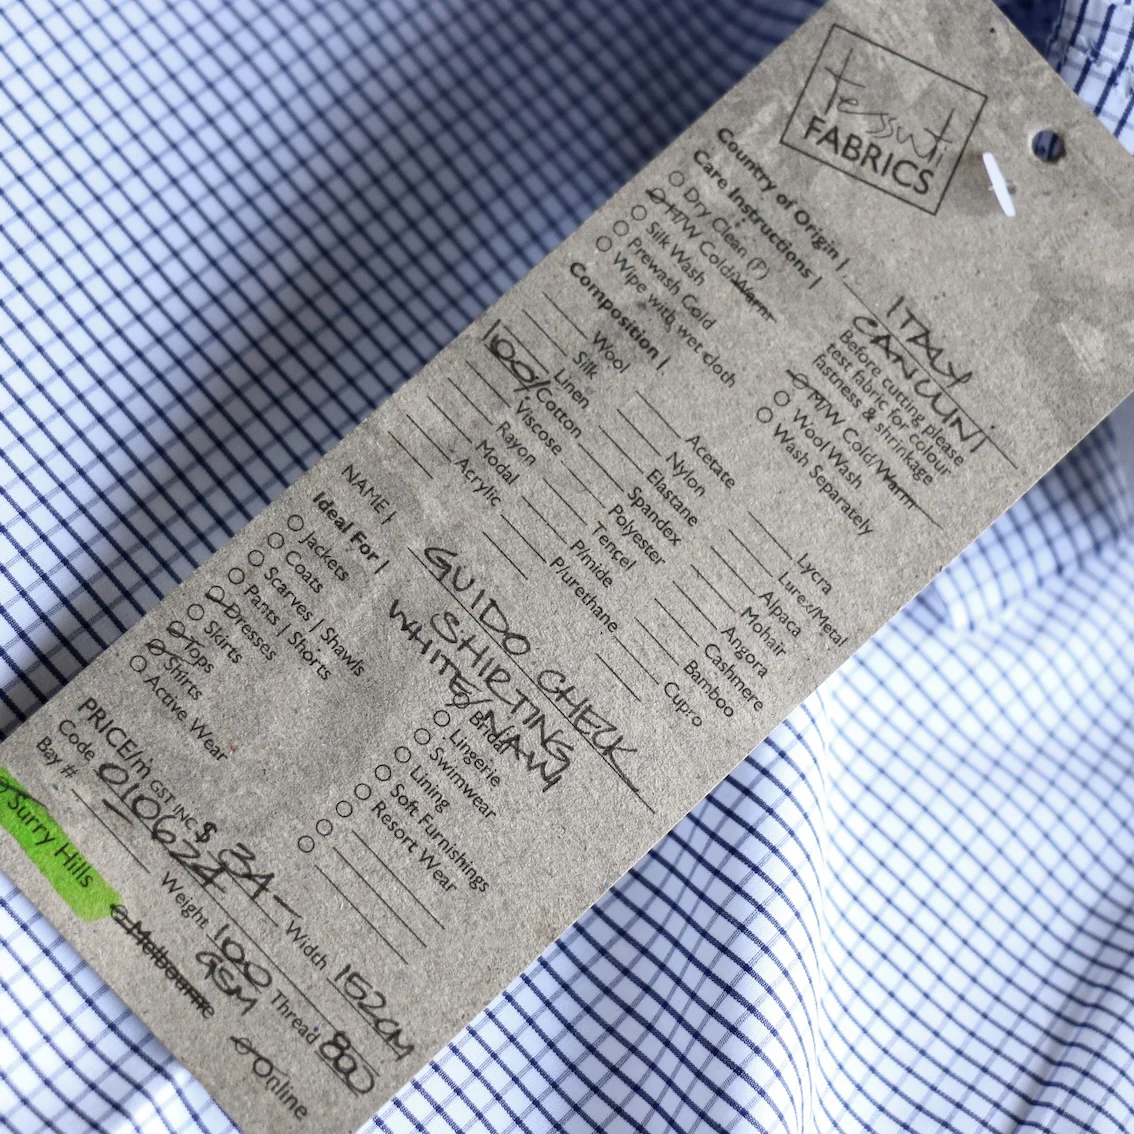 tessuti
FABRICS
Country of Origin | ITALY
CANCLINI
Care Instructions |
Before cutting please
test fabric for colour
fastness & shrinkage
Dry Clean (P)
H/W Cold/Warm
Silk Wash
Prewash Cold
Wipe with wet cloth
M/W Cold/Warm
Wool Wash
Wash Separately
Composition |
Wool
Silk
Linen
100% Cotton
Viscose
Rayon
Modal
Acrylic
Acetate
Nylon
Elastane
Spandex
Polyester
Tencel
P/mide
P/urethane
Lycra
Lurex/Metal
Alpaca
Mohair
Angora
Cashmere
Bamboo
Cupro
NAME | GUIDO CHECK
SHIRTING
WHITE/NAVY
Ideal For |
Jackets
Coats
Scarves | Shawls
Pants | Shorts
Dresses
Skirts
Tops
Shirts
Active Wear
Bridal
Lingerie
Swimwear
Lining
Soft Furnishings
Resort Wear
PRICE/m GST INC $ 34- Width 152CM
Code 010624 Weight 100 GSM Thread 800
Bay #
Surry Hills
Melbourne
Online